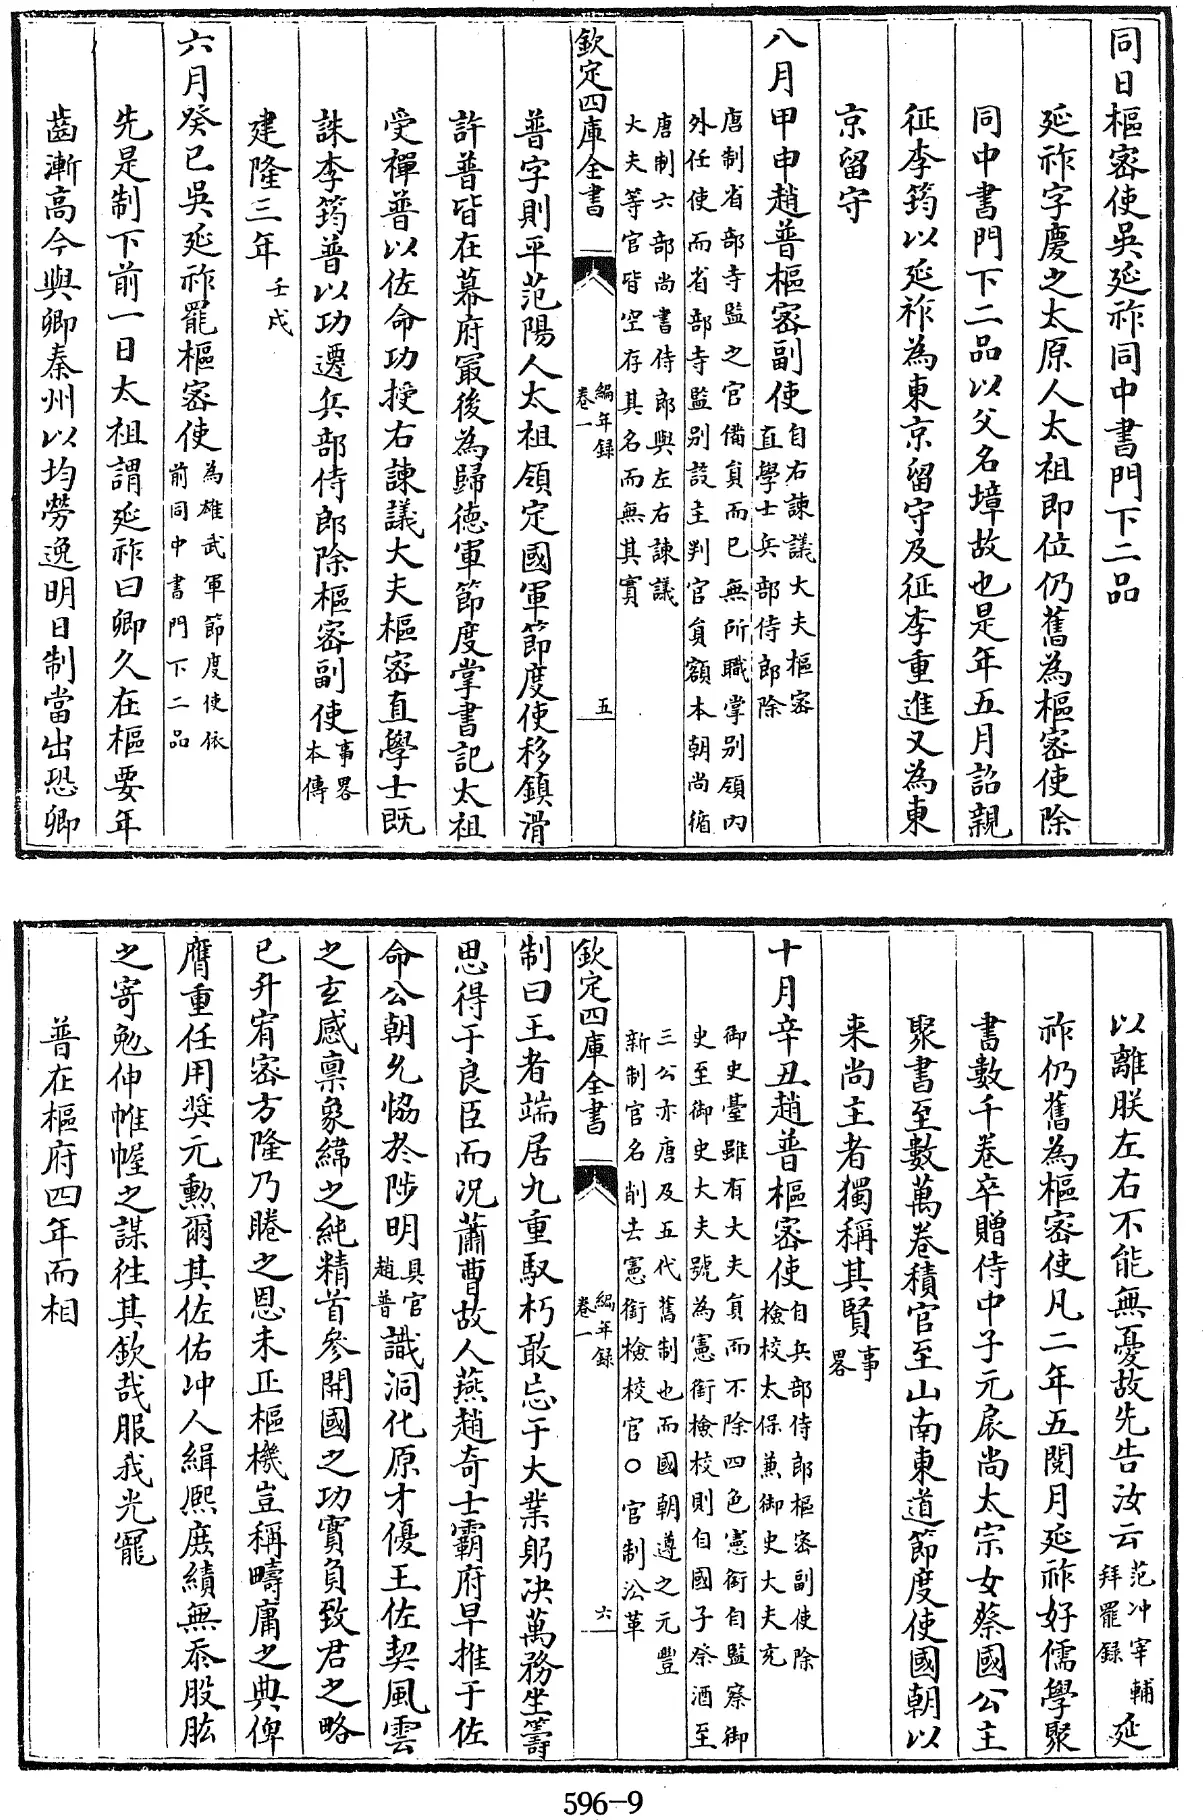 同日樞密使吳延祚同中書門下二品
延祚字慶之太原人太祖即位仍舊為樞密使除
同中書門下二品以父名璋故也是年五月詔親
征李筠以延祚為東京留守及征李重進又為東
京留守
八月甲申趙普樞密副使自右諫議大夫樞密
直學士兵部侍郎除
唐制省部寺監之官備員而已無所職掌別領內
外任使而省部寺監別設主判官員額本朝尚循
唐制六部尚書侍郎與左右諫議
大夫等官皆空存其名而無其實
欽定四庫全書
編年録
卷一
五
普字則平范陽人太祖領定國軍節度使移鎮滑
許普皆在幕府最後為歸德軍節度掌書記太祖
受禪普以佐命功授右諫議大夫樞密直學士既
誅李筠普以功遷兵部侍郎除樞密副使事畧
本傳
建隆三年壬戌
六月癸巳吳延祚罷樞密使為雄武軍節度使依
前同中書門下二品
先是制下前一日太祖謂延祚曰卿久在樞要年
齒漸高今與卿秦州以均勞逸明日制當出恐卿
以離朕左右不能無憂故先告汝云范冲宰輔
拜罷録延
祚仍舊為樞密使凡二年五閱月延祚好儒學聚
書數千卷卒贈侍中子元扆尚太宗女蔡國公主
聚書至數萬卷積官至山南東道節度使國朝以
来尚主者獨稱其賢事
畧
十月辛丑趙普樞密使自兵部侍郎樞密副使除
檢校太保兼御史大夫充
御史臺雖有大夫員而不除四色憲銜自監察御
史至御史大夫號為憲銜檢校則自國子祭酒至
三公亦唐及五代舊制也而國朝遵之元豐
新制官名削去憲銜檢校官○官制沿革
欽定四庫全書
編年録
卷一
六
制曰王者端居九重馭朽敢忘于大業躬决萬務坐籌
思得于良臣而况蕭曹故人燕趙奇士霸府早推于佐
命公朝允恊於陟明具官
趙普識洞化原才優王佐契風雲
之玄感禀象緯之純精首參開國之功實負致君之略
已升宥密方隆乃睠之恩未正樞機豈稱疇庸之典俾
膺重任用奨元勲爾其佐佑冲人緝熈庶績無忝股肱
之寄勉伸帷幄之謀往其欽哉服我光寵
普在樞府四年而相
596-9